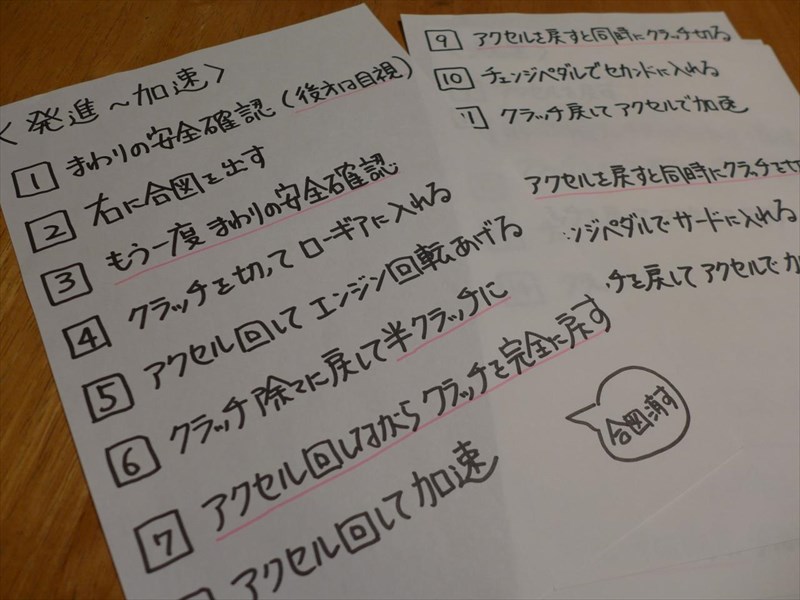 〈発進～加速〉
1 まわりの安全確認(後方は目視)
2 右に合図を出す
3 もう一度まわりの安全確認
4 クラッチを切ってローギアに入れる
5 アクセル回してエンジン回転あげる
6 クラッチ除々に戻して半クラッチに
7 アクセル回しながらクラッチを完全に戻す
アクセル回して加速
9 アクセルを戻すと同時にクラッチ切る
10 チェンジペダルでセカンドに入れる
11 クラッチ戻してアクセルで加速
アクセルを戻すと同時にクラッチを切
ンジペダルでサードに入れる
チを戻してアクセルで加
合図消す